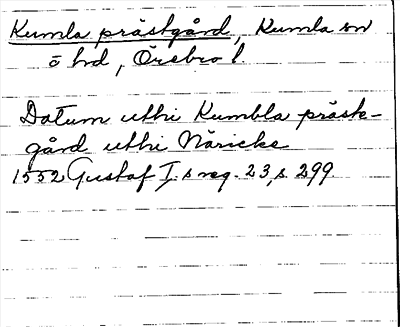 Kumla prästgård, Kumla sn
ö hd, Örebro l.
Datum uthi Kumbla präst-
gård uthi Näricke
1552 Gustaf I:s reg. 23, s. 299.